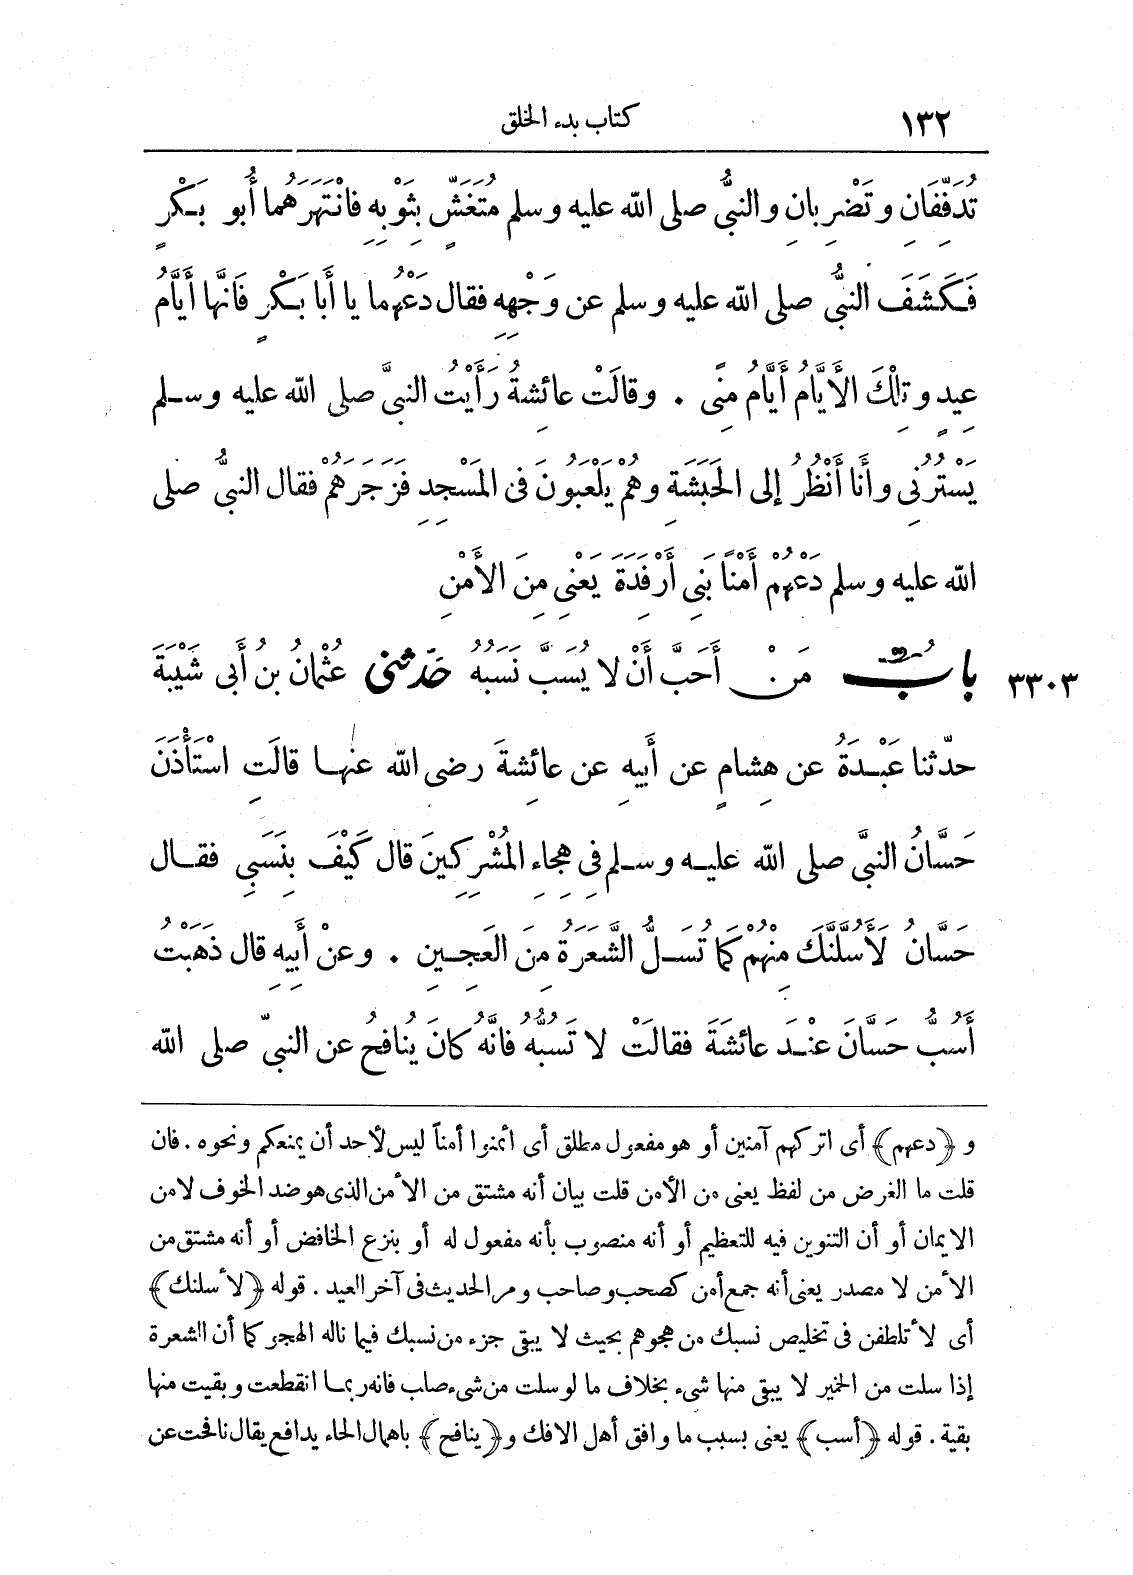 ١٣٢ كتاب بدء الخلق
تُدَفِّفَانِ وتَضْرِبانِ والنبىُّ صلى الله عليه وسلم مُتَغَشٍّ بِثَوْبِهِ فانْتَهَرَهُما أَبُو بَكْرٍ
فَكَشَفَ النبىُّ صلى الله عليه وسلم عن وَجْهِهِ فقال دَعْهُما يا أَبا بَكْرٍ فَانَّها أَيَّامُ
عِيدٍ وتِلْكَ الأَيَّامُ أَيَّامُ مِنًى . وقالَتْ عائِشةُ رَأَيْتُ النبىَّ صلى الله عليه وسلم
يَسْتُرُنِى وأَنا أَنْظُرُ إلى الحَبَشَةِ وهُمْ يَلْعَبُونَ فى المَسْجِدِ فَزَجَرَهُمْ فقال النبىُّ صلى
الله عليه وسلم دَعْهُمْ أَمْناً بَنِى أَرْفِدَةَ يَعْنِى مِنَ الأَمْنِ
٣٣٠٣ بابُ مَنْ أَحَبَّ أَنْ لا يُسَبَّ نَسَبُهُ حَدَّثنى عُثْمانُ بنُ أَبى شَيْبَةَ
حدّثنا عَبْدَةُ عن هِشامٍ عن أَبِيهِ عن عائِشةَ رضى الله عنها قالَتِ اسْتَأْذَنَ
حَسَّانُ النبىَّ صلى الله عليه وسلم فى هِجاءِ المُشْرِكِينَ قال كَيْفَ بِنَسَبِى فقال
حَسَّانُ لَأَسُلَّنَّكَ مِنْهُمْ كما تُسَلُّ الشَّعَرَةُ مِنَ العَجِينِ . وعنْ أَبِيهِ قال ذَهَبْتُ
أَسُبُّ حَسَّانَ عِنْدَ عائِشَةَ فقالَتْ لا تَسُبُّهُ فانَّهُ كانَ يُنافِحُ عن النبىّ صلى الله
و ﴿دعهم﴾ أى اتركهم آمنين أو هو مفعول مطلق أى ائمنوا أمناً ليس لأحد أن يمنعكم ونحوه . فان
قلت ما الغرض من لفظ يعنى من الأمن قلت بيان أنه مشتق من الأمن الذى هو ضد الخوف لا من
الايمان أو أن التنوين فيه للتعظيم أو أنه منصوب بأنه مفعول له أو بنزع الخافض أو أنه مشتق من
الأمن لا مصدر يعنى أنه جمع أمن كصحب وصاحب ومر الحديث فى آخر العيد . قوله ﴿لأسلنك﴾
أى لأتلطفن فى تخليص نسبك من هجوهم بحيث لا يبقى جزء من نسبك فيما ناله الهجو كما أن الشعرة
إذا سلت من الخمير لا يبقى منها شىء بخلاف ما لو سلت من شىء صلب فانه ربما انقطعت وبقيت منها
بقية . قوله ﴿أسب﴾ يعنى بسبب ما وافق أهل الافك و ﴿ينافح﴾ باهمال الحاء يدافع يقال نافحت عن